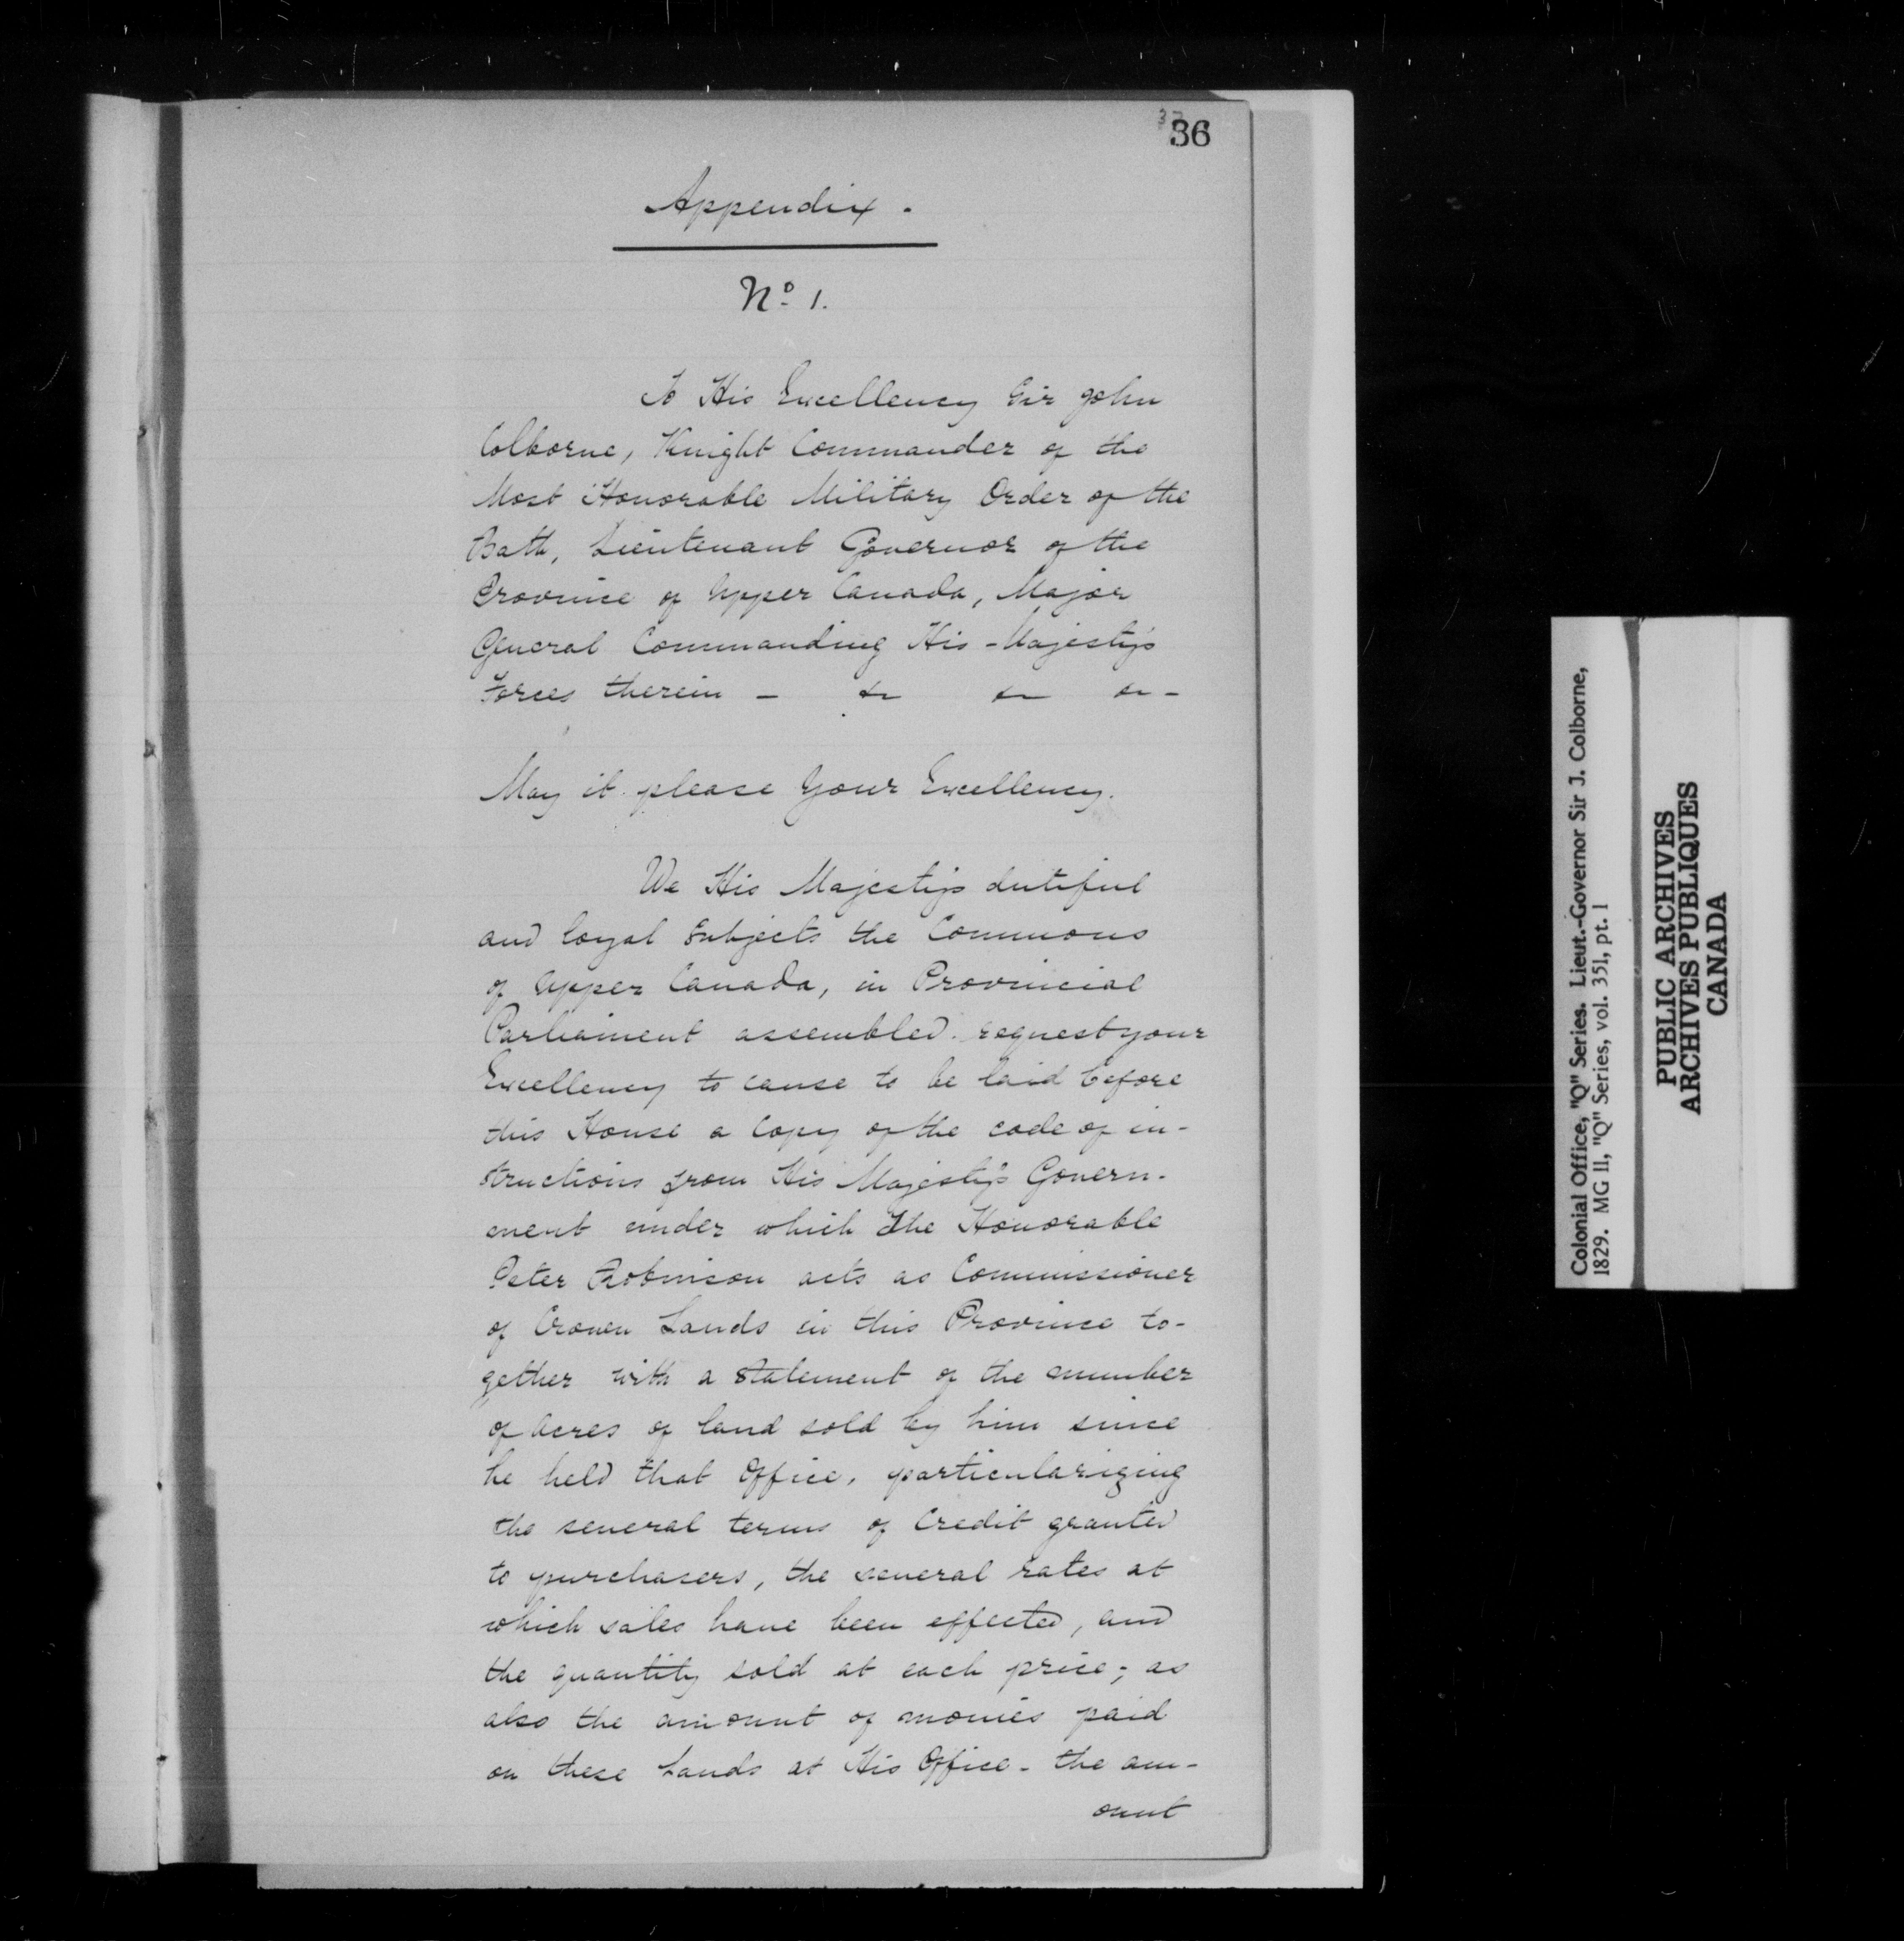 36
Appendix.
No 1.
To His Excellency Sir John
Colborne, Knight Commander of the
Most Honorable Military Order of the
Bath, Lieutenant Governor of the
Province of Upper Canada, Major
General Commanding His Majesty's
Forces therein - &c &c &c -
May it please Your Excellency.
We His Majesty's dutiful
and loyal Subjects the Commons
of Upper Canada, in Provincial
Parliament assembled request your
Excellency to cause to be laid before
this House a Copy of the code of in-
structions from His Majesty's Govern-
ment under which the Honorable
Peter Robinson acts as Commissioner
of Crown Lands in this Province to-
gether with a statement of the number
of Acres of land sold by him since
he held that Office, particularizing
the several terms of Credit granted
to purchasers, the several rates at
which sales have been effected, and
the quantity sold at each price; as
also the amount of monies paid
on these Lands at His Office - the am-
ount
Colonial Office, "Q" Series. Lieut.-Governor Sir J. Colborne,
1829. MG 11, "Q" Series, vol. 351, pt. 1
PUBLIC ARCHIVES
ARCHIVES PUBLIQUES
CANADA